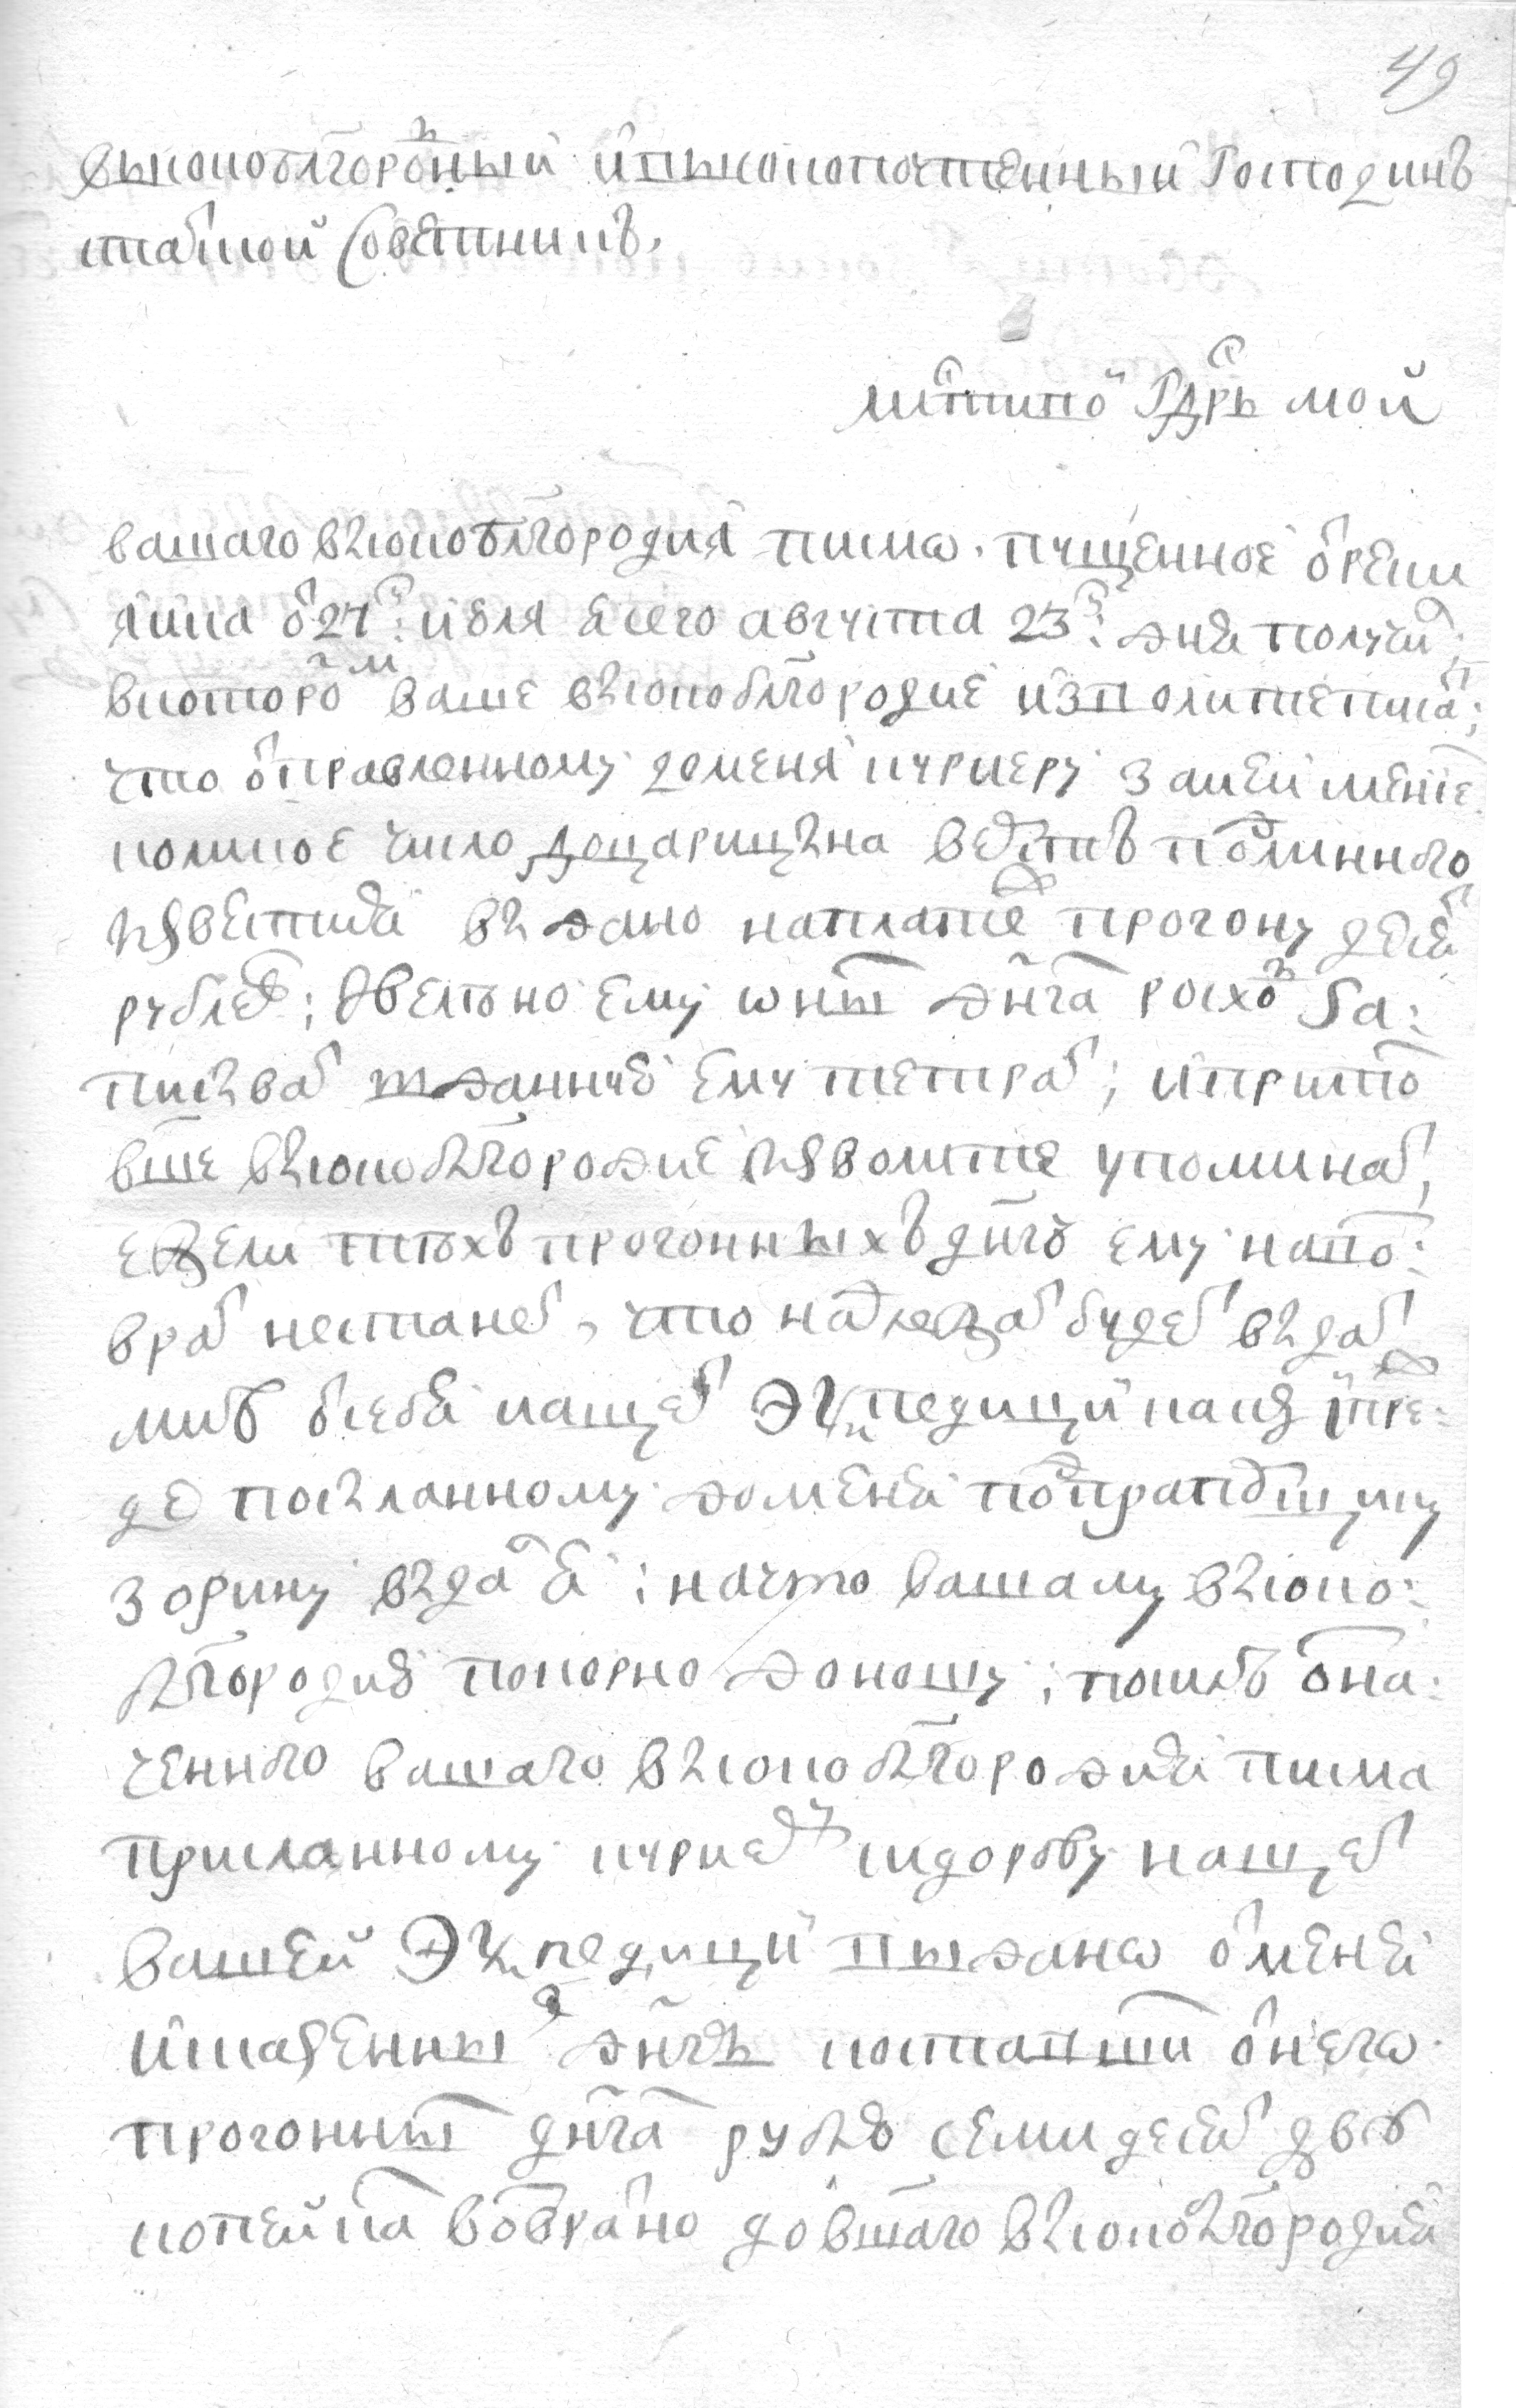 49
высокоблгородный ивысокопочтенный Господинъ
статской Советникъ.
млстивой Гдрь мой
вашаго высокоблгородия писмо. пущенное
от 24г: июля я сего августа 23г: дня получил;
вкотором ваше высокоблгородие изволите писать;
что отправленному доменя куриеру
число доцарицына вместъ подлинного
известия выдано наплатеж прогону десять
рублев; ивелено ему оных днгах росход за:
писыват вданную ему тетрат; ипритом
вше высокоблгородие изволите упоминат,
ежели тѣхъ прогонныхъ днгъ ему напо:
врат нестанет, что надлежат будет выдат
мнѣ отсебя насчет Экспедицыи какъ ипре:
де посыланному доменя подпрапорщику
Зорину выдаваны; начто вашему высоко:
блгородию покорно доношу; посилѣ озна:
ченного вашаго высокоблгородия писма
присланному куриеру сидорову насчет
вашей Экспедицыи выдано отменя
исказенных днгъ кставшим унего
прогонных днгам рубль семидесят двѣ
копейки вовратно довшаго высокоблгородия